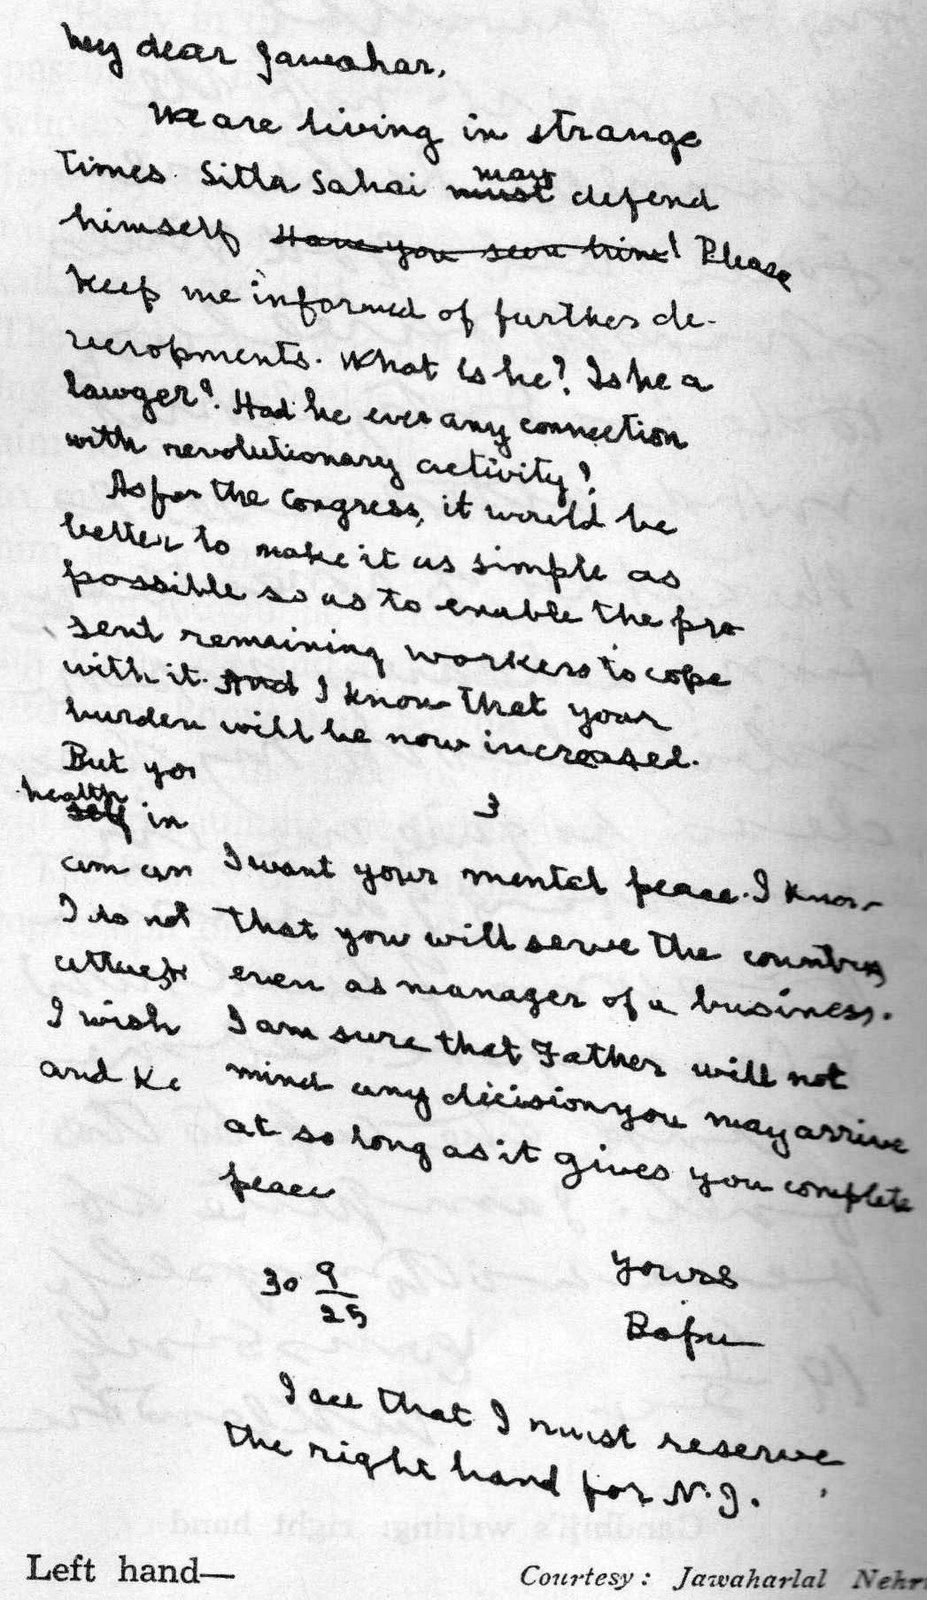 My dear Jawahar,
We are living in strange
times. Sitla Sahai may must defend
himself Have you seen him! Please
keep me informed of further de-
velopments. What is he? Is he a
lawyer? Had he ever any connection
with revolutionary activity?
As for the Congress, it would be
better to make it as simple as
possible so as to enable the pre
sent remaining workers to cope
with it. And I know that your
burden will be now increased.
But you
health self in
am an
I do not
I wish
and ke
3
I want your mental peace. I know
that you will serve the country
even as manager of a business.
I am sure that Father will not
mind any decision you may arrive
at so long as it gives you complete
peace
30 9/25
Yours
Bapu
I see that I must reserve
the right hand for N.J.
Left hand—
Courtesy: Jawaharlal Nehr
Gandhiji's writing: right hand